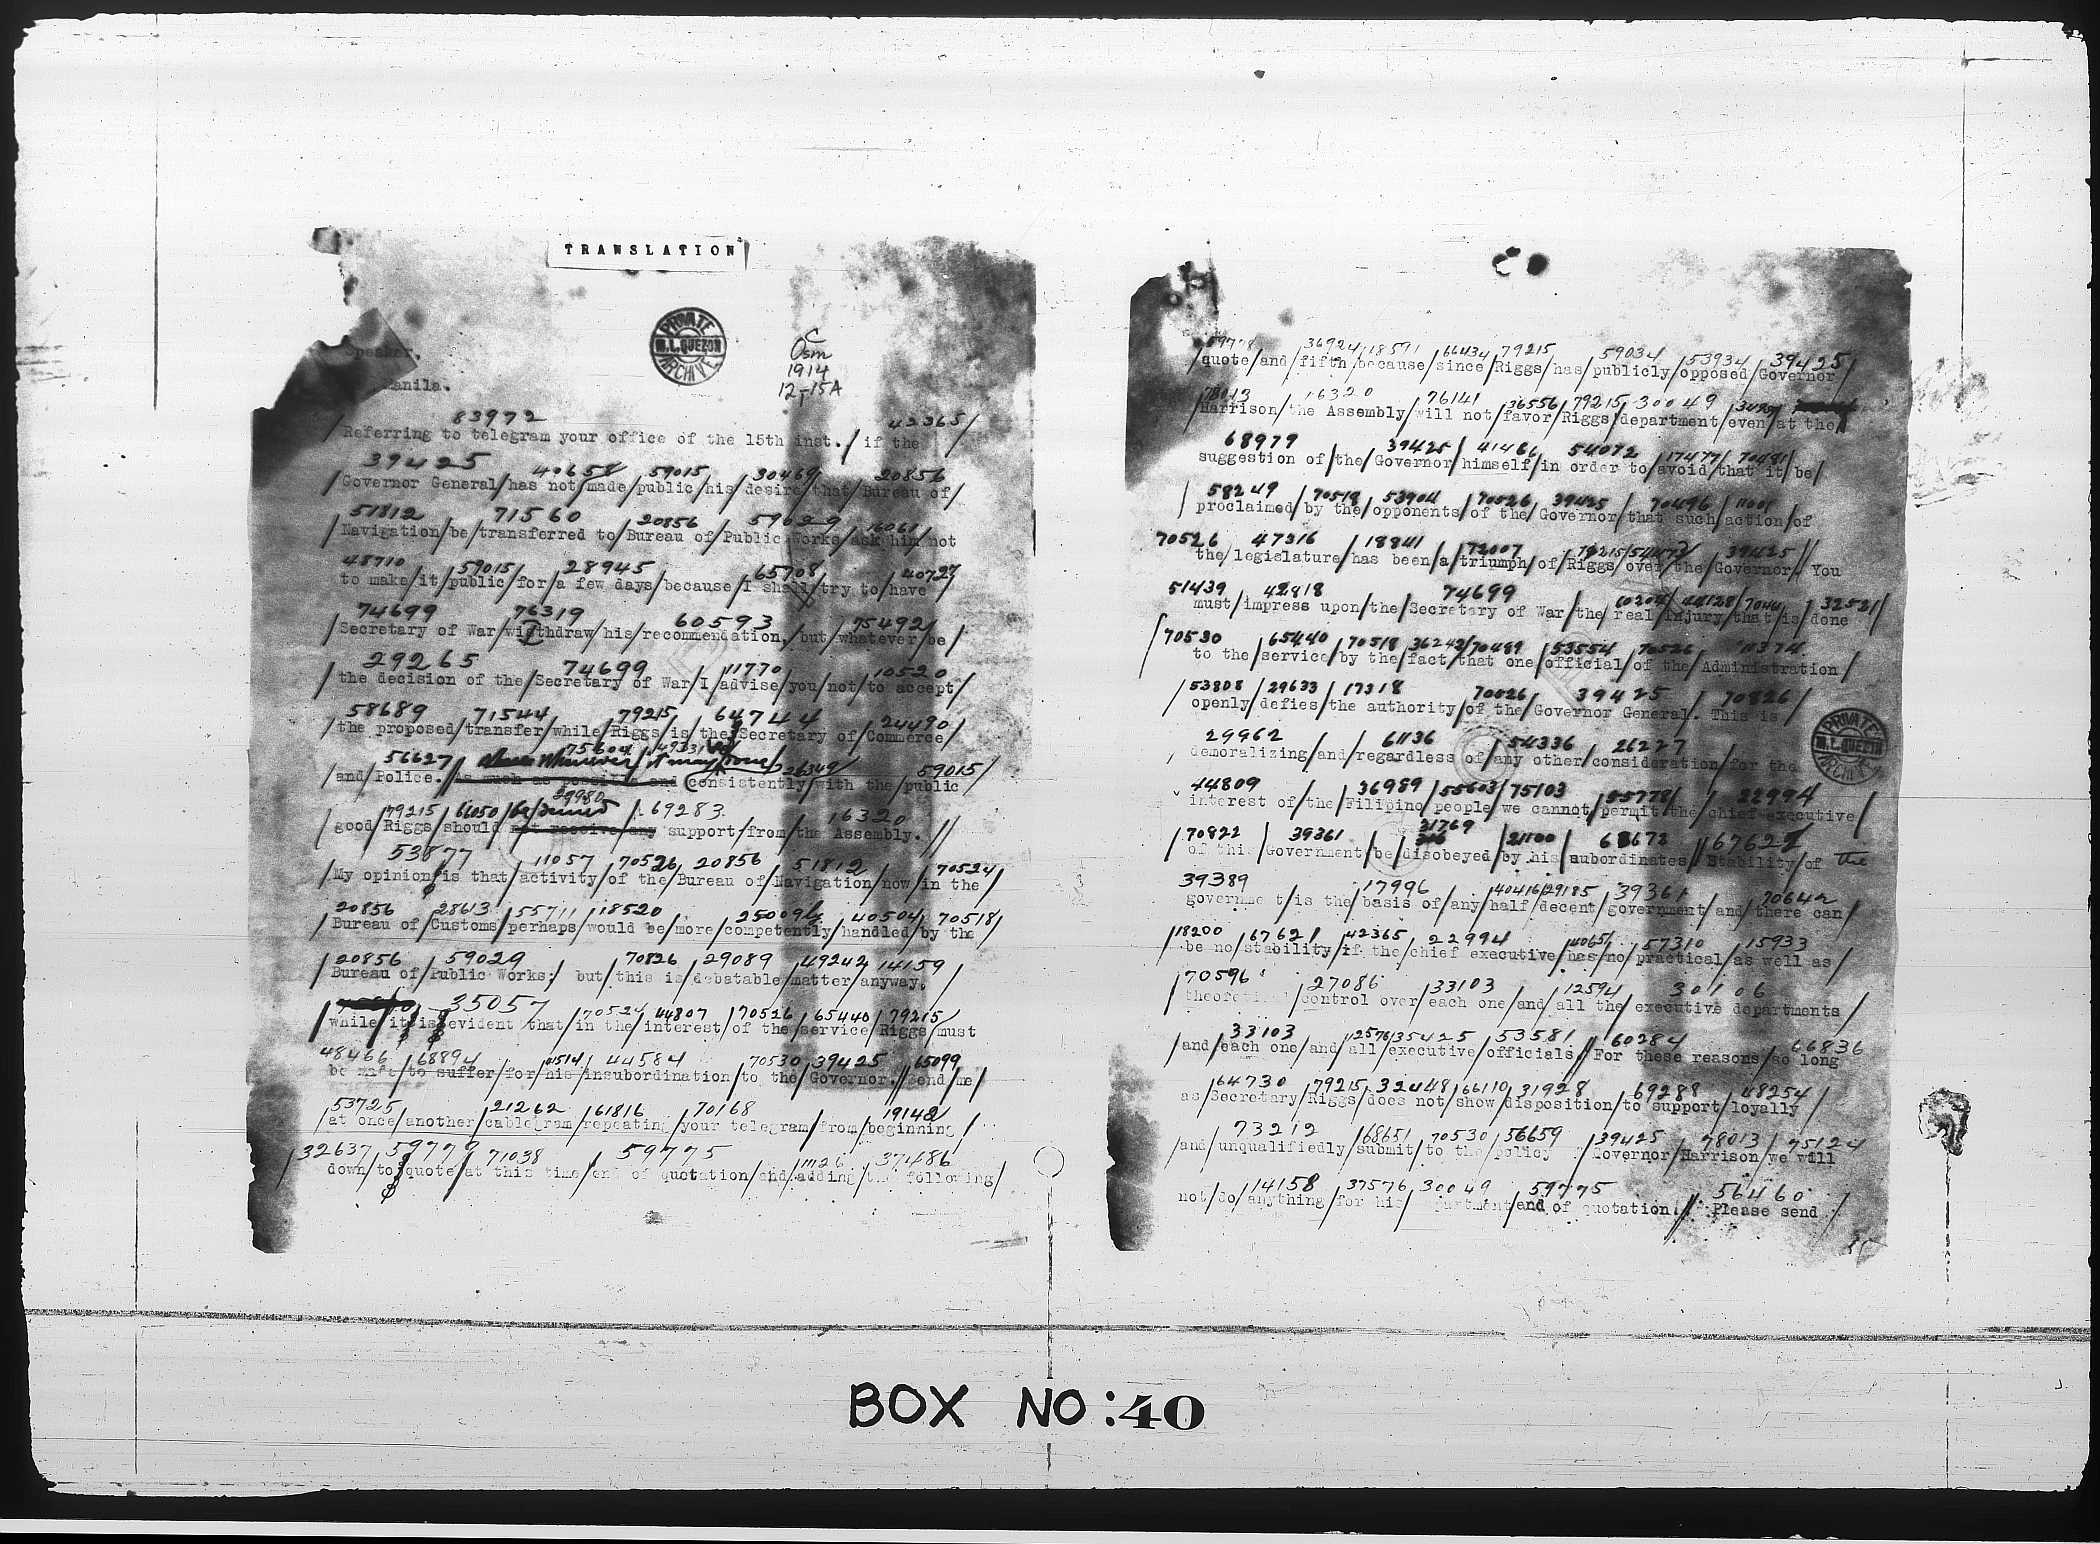 TRANSLATION
PRIVATE
M.L.QUEZON
ARCHIVE
C
Osm
1914
12-15A
Speaker,
Manila.
83972 42365
Referring to telegram your office of the 15th inst./ if the/
39425 40658 59015 30469 20856
/Governor General/has not/made/public/his/desire/that/Bureau of/
51812 71560 20856 59029 16061
/Navigation/be/transferred to/Bureau of/Public Works/ask him/not
48710 59015 28945 65708 40727
to make/it/public/for/a few days/because/I shall/try to/have/
74699 76319 60593 75492
/Secretary of War/withdraw/his/recommendation,/but/whatever/be/
29265 74699 11770 10520
/the decision of the/Secretary of War/I/advise/you/not/to accept/
58689 71544 79215 64744 24490
/the proposed/transfer/while/Riggs/is the/Secretary of/Commerce/
56627 75604 49331 26349 59015
and/Police./ Whenever/it may/ consistently/with the/public/
79215 66050 be/denied 29980 69283 16320
/good/Riggs/should/ not receive any support/from/the Assembly.//
53877 11057 70526 20856 51812 70524
/My opinion/is that/activity/of the/Bureau of/Navigation/now/in the/
20856 28613 55711 18520 25009 40504 70518
/Bureau of/Customs/perhaps/would be/more/competently/handled/by the/
20856 59029 70826 29089 49242 14159
/Bureau of/Public Works;/ but/this is/debatable/matter/anyway./
35057 70524 44807 70526 65440 79215
/while/it/is/evident that/in the/interest/of the/service/Riggs/must
48466 68894 41514 44584 70530 39425 65099
be made/to suffer/for/his/insubordination/to the/Governor.//Send me/
53725 21262 61816 70168 19148
/at once/another/cablegram/repeating/your telegram/from/beginning/
32637 59779 71038 59775 11126 37486
down/to/quote/at this time/end of quotation/and/adding/the following/
59778 36924 18591 66434 79215 59034 53934 39425
/quote/and/fifth/because/since/Riggs/has/publicly/opposed/Governor/
78013 16320 76141 36556 79215 30049
/Harrison/the Assembly/will not/favor/Riggs/department/even/at the/
68979 39425 41466 54072 17477 70491
suggestion of/the/Governor/himself/in order to/avoid/that it/be/
58249 70518 53904 70526 39425 70496 11001
/proclaimed/by the/opponents/of the/Governor/that such/action/of
70526 47316 18841 72007 79215 54473 39425
the/legislature/has been/a/triumph/of/Riggs/over/the/Governor./ You
51439 42818 74699 60204 44128 70491 32521
must/impress upon/the/Secretary of War/the/real/injury/that/is/done
70530 65440 70518 36242 70489 53554 70526 11374
to the/service/by the/fact/that one/official/of the/Administration/
53808 29633 17318 70526 39425 70826
/openly/defies/the authority/of the/Governor General. This is
29962 61136 54336 26227
demoralizing/and/regardless of/any other/consideration/for the
44809 36989 55603 75103 55778 22994
interest of/the/Filipino/people/we cannot/permit/the/chief executive/
70822 39361 31769 21100 68672 67621
of this/Government/be/disobeyed/by his/subordinates//Stability/of the
39389 17996 40416 29185 39361 70642
government/is the/basis of/any/half/decent/government/and/there can/
18200 67621 42365 22994 40651 57310 15933
/be no/stability/if the/chief executive/has/no/practical/as well as/
70596 27086 33103 12594 30106
/theoretical/control over/each one/and/all the/executive departments/
33103 12576 35425 53581 60284 66836
/and/each one/and/all/executive/officials.//For these reasons/so long
64730 79215 32448 66110 31928 69288 48254
as/Secretary/Riggs/does not/show/disposition/to support/loyally/
73212 68651 70530 56659 39425 78013 75124
/and/unqualifiedly/submit/to the/policy Governor/Harrison/we will
14158 37576 30049 59775 56460
not/do/anything/for his/department/end of quotation.// Please send/
PRIVATE
M.L.QUEZON
ARCHIVE
BOX NO:40